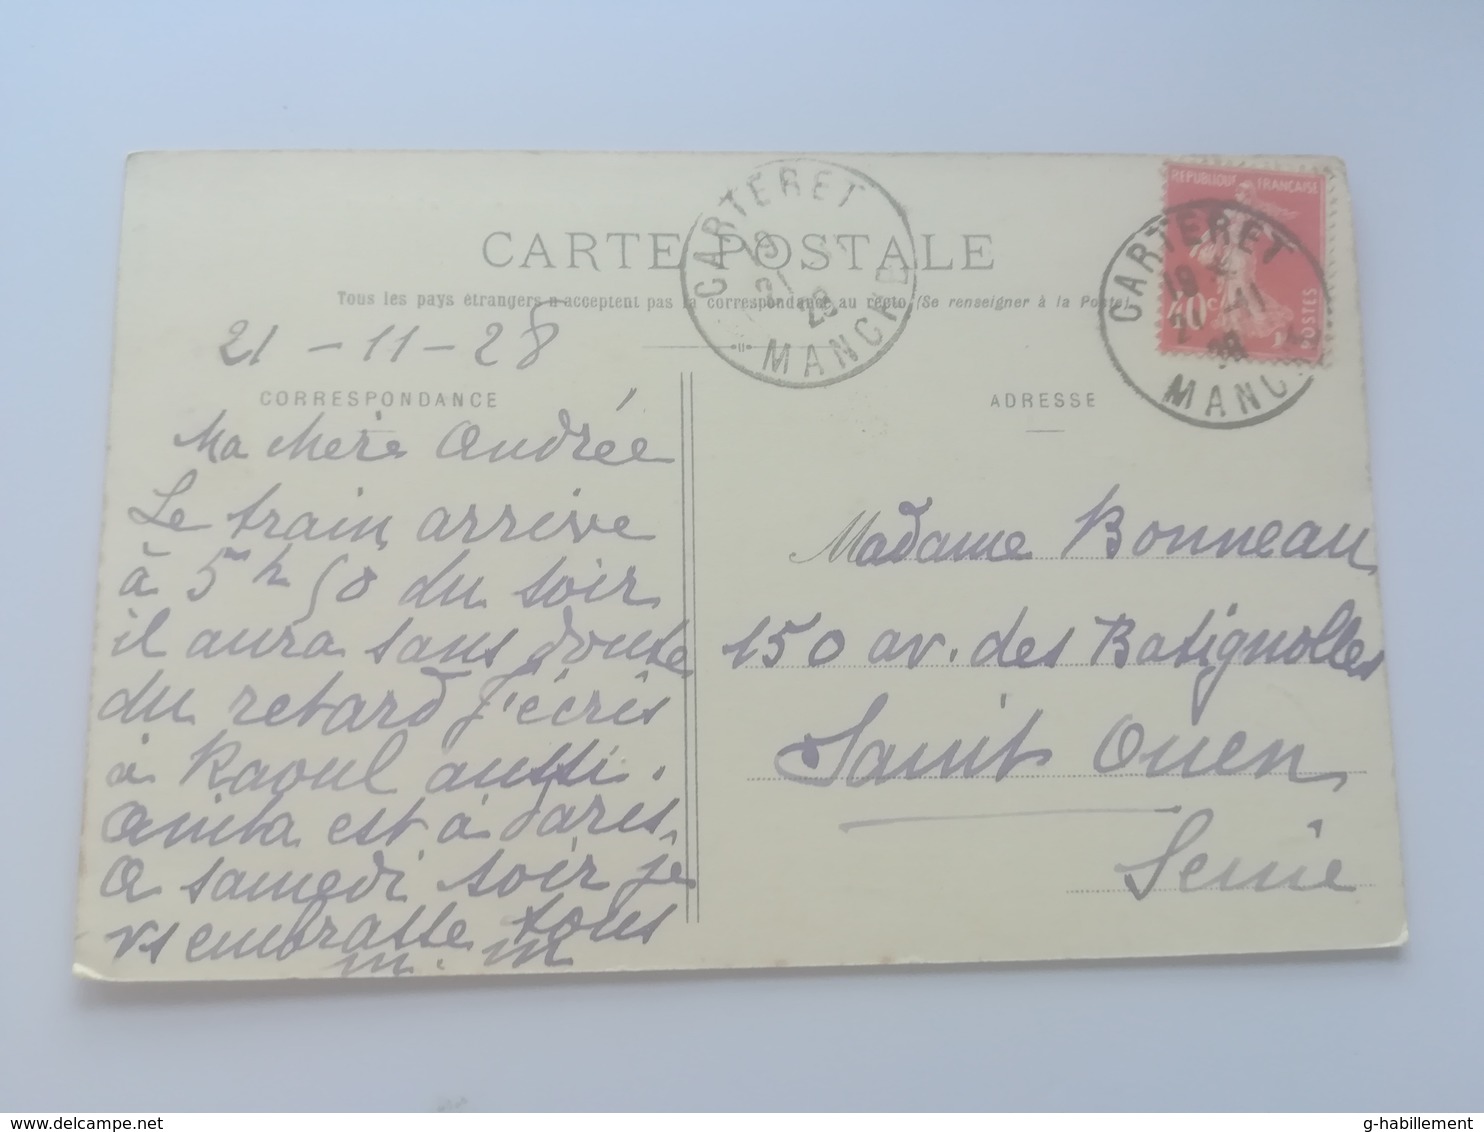 CARTE POSTALE
Tous les pays étrangers n'acceptent pas la correspondance au recto (Se renseigner à la Poste)
CARTERET
19
21
28
MANCHE
REPUBLIQUE FRANÇAISE
40c
POSTES
CARTERET
19
-11
28
MANC
21-11-28
CORRESPONDANCE
Ma chère Andrée
Le train arrive
à 5h 50 du soir
il aura sans doute
du retard J'écris
à Raoul aussi.
Anita est à Paris.
A samedi soir je
vs embrasse tous
M. M
ADRESSE
Madame Bonneau
150 av. des Batignolles
Saint Ouen
Seine
delcampe.net
g-habillement